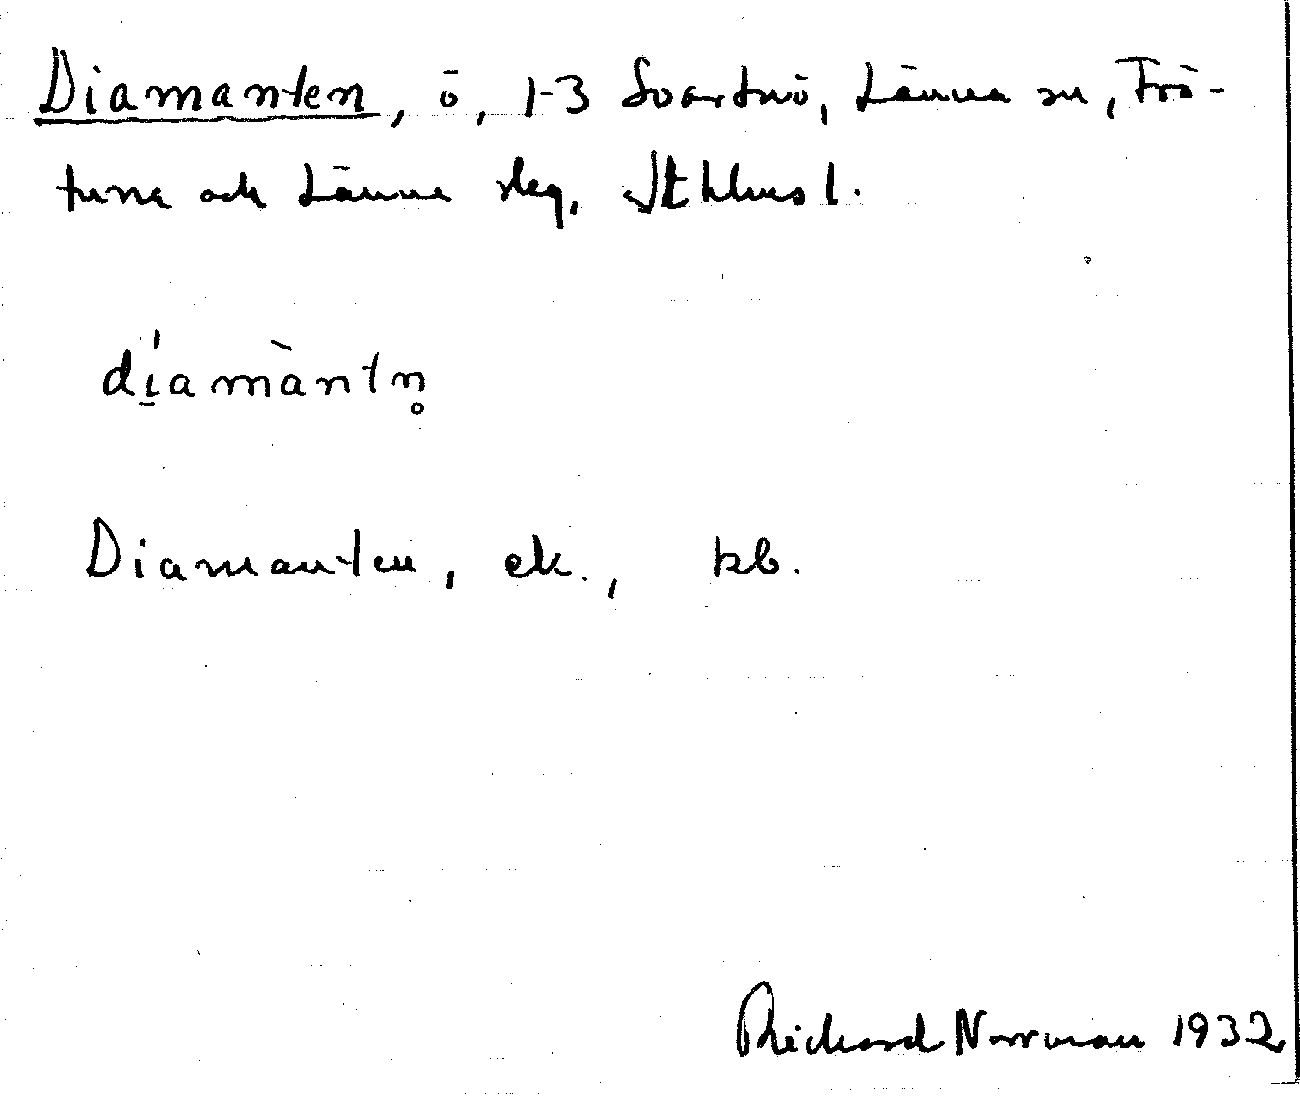 Diamanten, ö, 1-3 Svartnö, Länna sn, Frö-
tuna och Länna slag, Sthlms l.
díamàntn̥
Diamanten, ek., kb.
Richard Norrman 1932